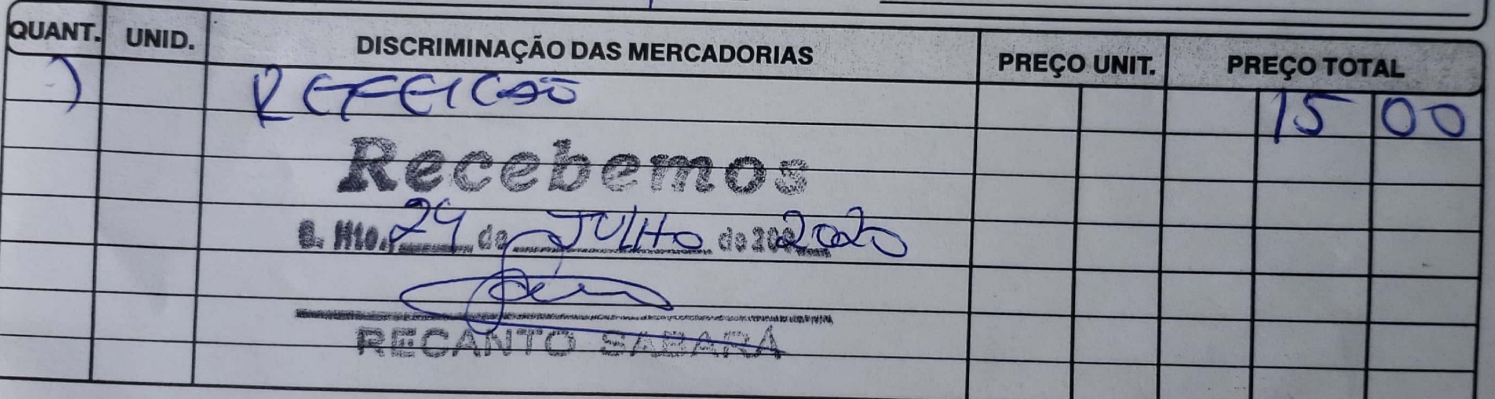 QUANT. UNID. DISCRIMINAÇÃO DAS MERCADORIAS PREÇO UNIT. PREÇO TOTAL
1 REFEICÃO 15 00
Recebemos
de JULHO de 2020
RECANTO SABARÁ